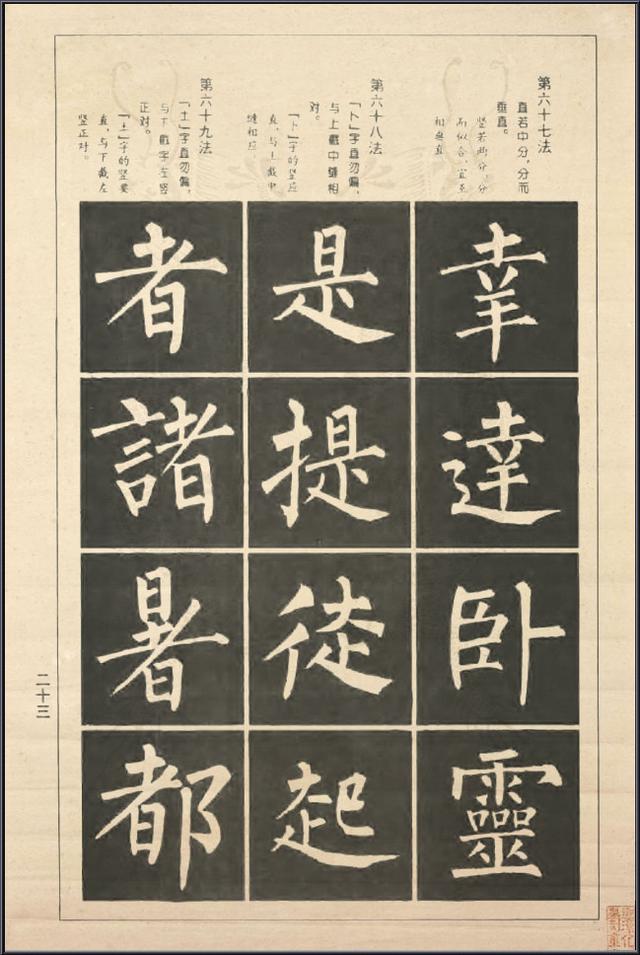 第六十七法
直若中分,分而
垂直。
竖若两分,分
而似合,宜至
相垂直
幸
達
卧
靈
第六十八法
「卜」字直勿偏,
与上截中缝相
对。
「卜」字的竖应
直,与上截中
缝相应
是
提
徒
起
第六十九法
「土」字直勿偏,
与下截字左竖
正对。
「土」字的竖要
直,与下截左
竖正对。
者
諸
暑
都
二十三